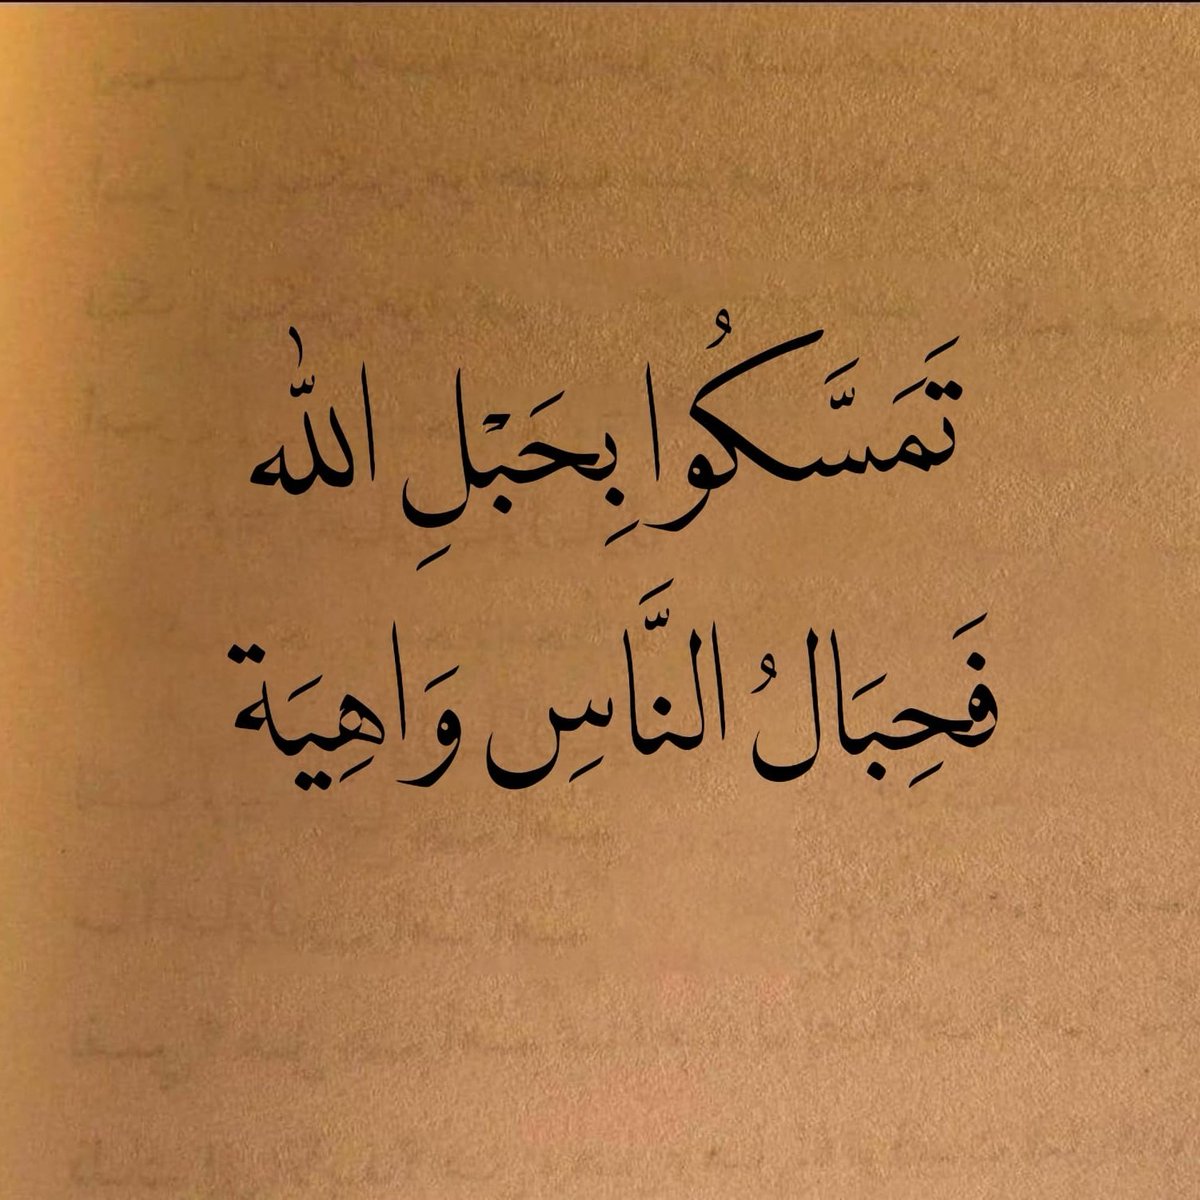 تَمَسَّكُوا بِحَبْلِ اللّٰه
فَحِبَالُ النَّاسِ وَاهِيَة